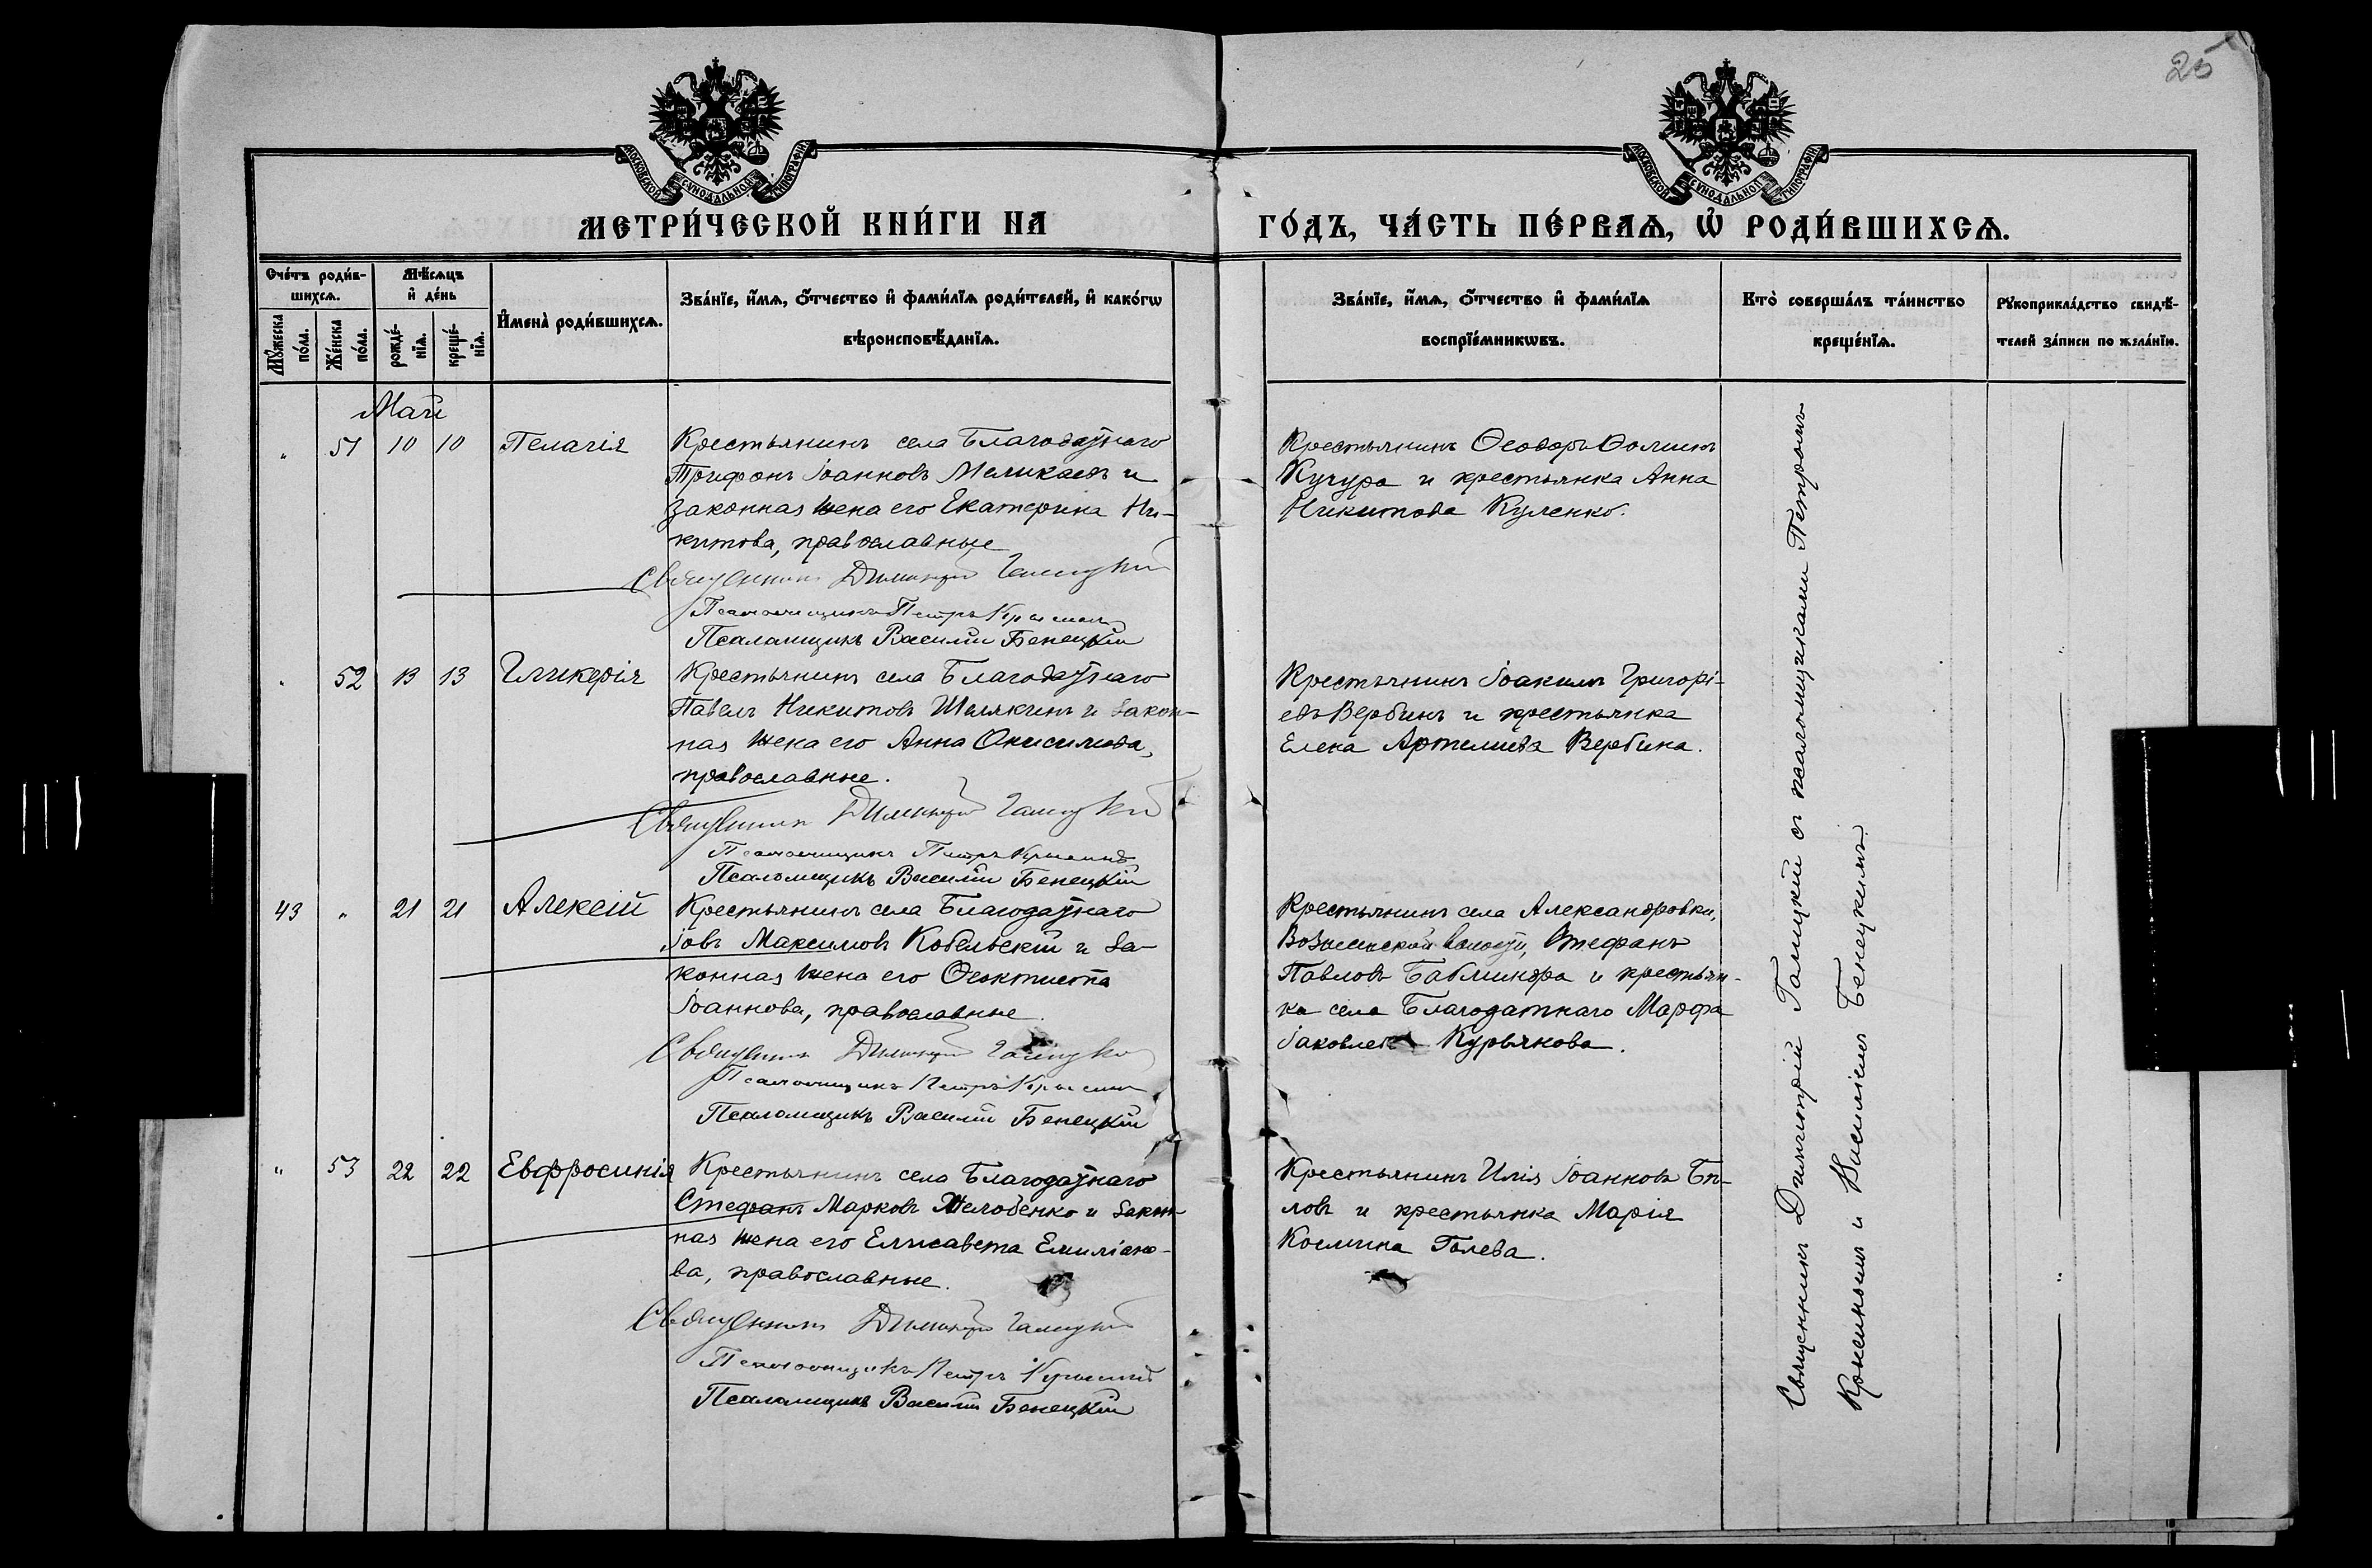 25
МОСКОВСКОЙ СѴНОДАЛЬНОЙ ТИПОГРАФІИ
МОСКОВСКОЙ СѴНОДАЛЬНОЙ ТИПОГРАФІИ
МЕТРИ́ЧЕСКОЙ КНИ́ГИ НА
ГО́ДЪ, ЧА́СТЬ ПЕ́РВАѦ, Ѿ РОДИ́ВШИХСѦ.
Сче́тъ роди́в-
шихсѧ.
Мѣ́сѧцъ
и҆ де́нь
Мꙋ́жеска
по́ла.
Же́нска
по́ла.
рожде́-
нїѧ.
креще́-
нїѧ.
И҆мена̀ роди́вшихсѧ.
Зва́нїе, и҆́мѧ, ѻ҆́тчество и҆ фами́лїѧ роди́телей, и҆ како́гѡ
вѣроисповѣ́данїѧ.
Зва́нїе, и҆́мѧ, ѻ҆́тчество и҆ фами́лїѧ
воспрїе́мникѡвъ.
Кто̀ соверша́лъ та́инство
креще́нїѧ.
Рꙋкоприкла́дство свидѣ́-
телей за́писи по жела́нїю.
Май
" 51 10 10 Пелагія
Крестьянинъ села Благодатнаго
Трифонъ Іоанновъ и
законная жена его Екатерина Ни-
китова, православные
Священникъ Димитрій Галицкій
Псаломщикъ Петръ
Псаломщикъ Василій Бенецкій
Крестьянинъ Ѳеодоръ Ѳоминъ
Кучура и крестьянка Анна
Никитова Куленко.
" 52 13 13 Гликерія
Крестьянинъ села Благодатнаго
Павелъ Никитовъ Шелякинъ и закон-
ная жена его Анна Онисимова,
православные.
Священникъ Димитрій Галицкій
Псаломщикъ Петръ
Псаломщикъ Василій Бенецкій
Крестьянинъ Іоакимъ Григорі-
евъ Вербинъ и крестьянка
Елена Артемиева Вербина.
43 " 21 21 Алексій
Крестьянинъ села Благодатнаго
Іовъ Максимовъ Кобельскій и за-
конная жена его Ѳеоктиста
Іоаннова, православные.
Священникъ Димитрій Галицкій
Псаломщикъ Петръ
Псаломщикъ Василій Бенецкій
Крестьянинъ села Александровки,
Вознесенской волости, Стефанъ
Павловъ и крестьян-
ка села Благодатнаго Марфа
Іаковлева Курьянова.
" 53 22 22 Евфросинія
Крестьянинъ села Благодатнаго
Стефанъ Марковъ Желобенко и закон-
ная жена его Елисавета Емиліано-
ва, православные.
Священникъ Димитрій Галицкій
Псаломщикъ Петръ
Псаломщикъ Василій Бенецкій
Крестьянинъ Илія Іоанновъ Бѣ-
ловъ и крестьянка Марія
Космина Голева.
Священникъ Димитрій Галицкій съ псаломщиками Петромъ
и Василіемъ Бенецкимъ